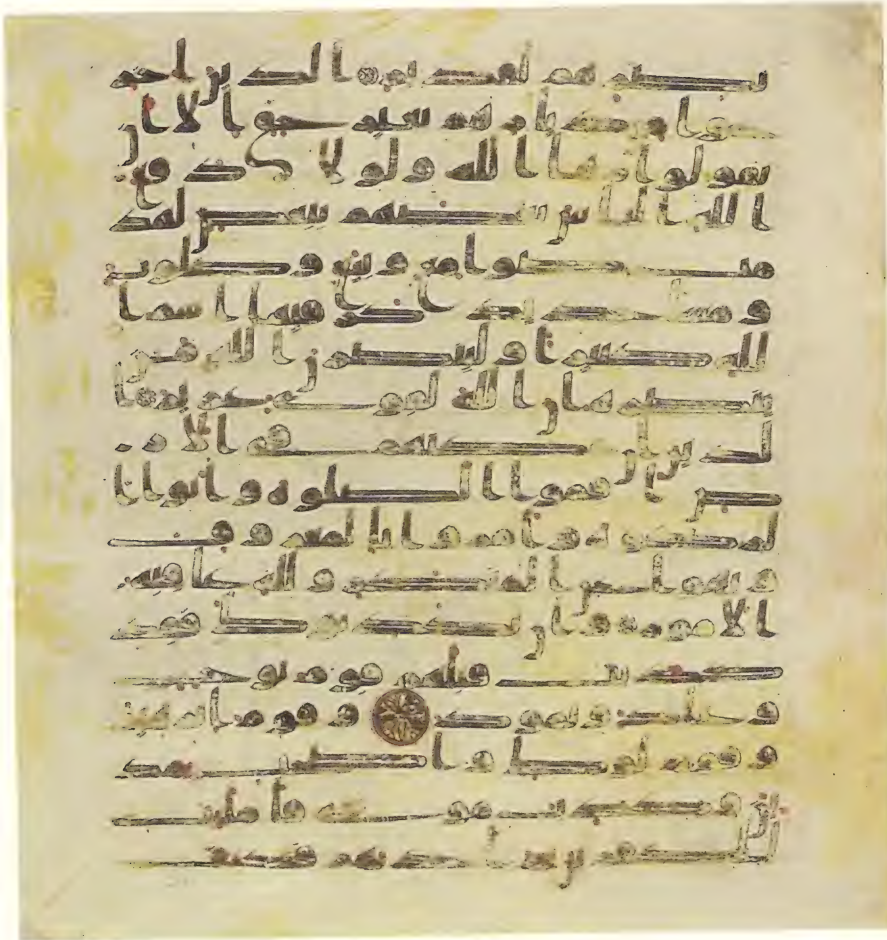 نصرهم لقدير الذين اخر
جوا من ديرهم بغير حق الا ان
يقولوا ربنا الله ولولا دفع
الله الناس بعضهم ببعض لهد
مت صومع وبيع وصلوت
ومسجد يذكر فيها اسم ا
لله كثيرا ولينصرن الله من
ينصره ان الله لقوى عزيز ا
لذين ان مكنهم فى الار
ض اقاموا الصلوة واتوا ا
لزكوة وامروا بالمعروف
ونهوا عن المنكر ولله عقبة
الامور وان يكذبوك فقد
كذبت قبلهم قوم نوح
وعاد وثمود وقوم ابرهيم
وقوم لوط واصحب مد
ين وكذب موسى فامليت
للكفرين ثم اخذتهم فكيف